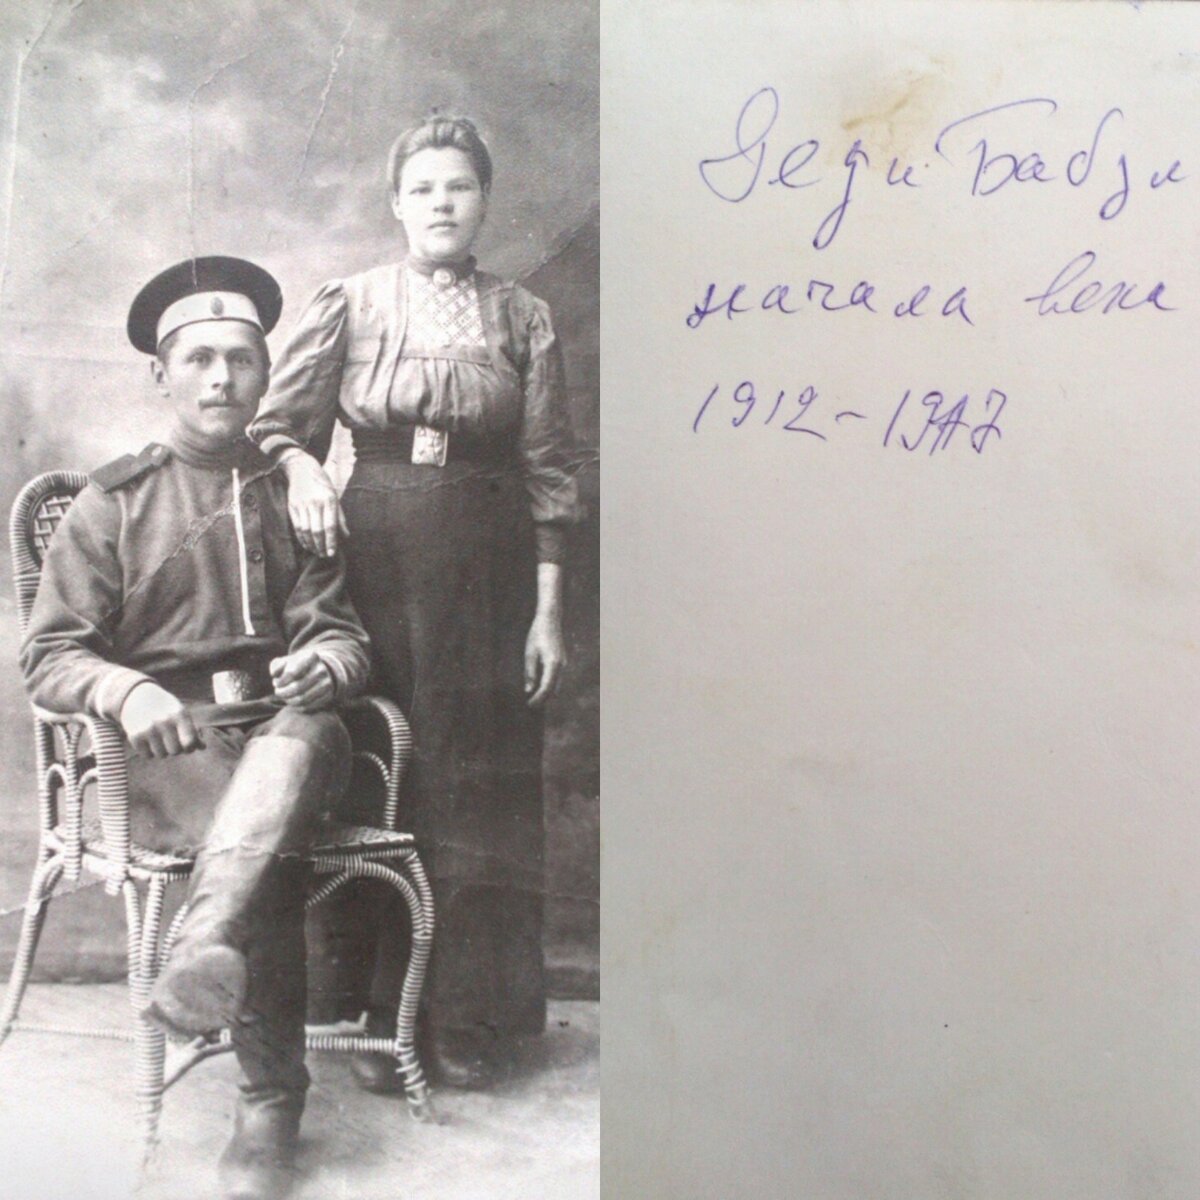 Дед и Бабуля
начала века
1912-1917